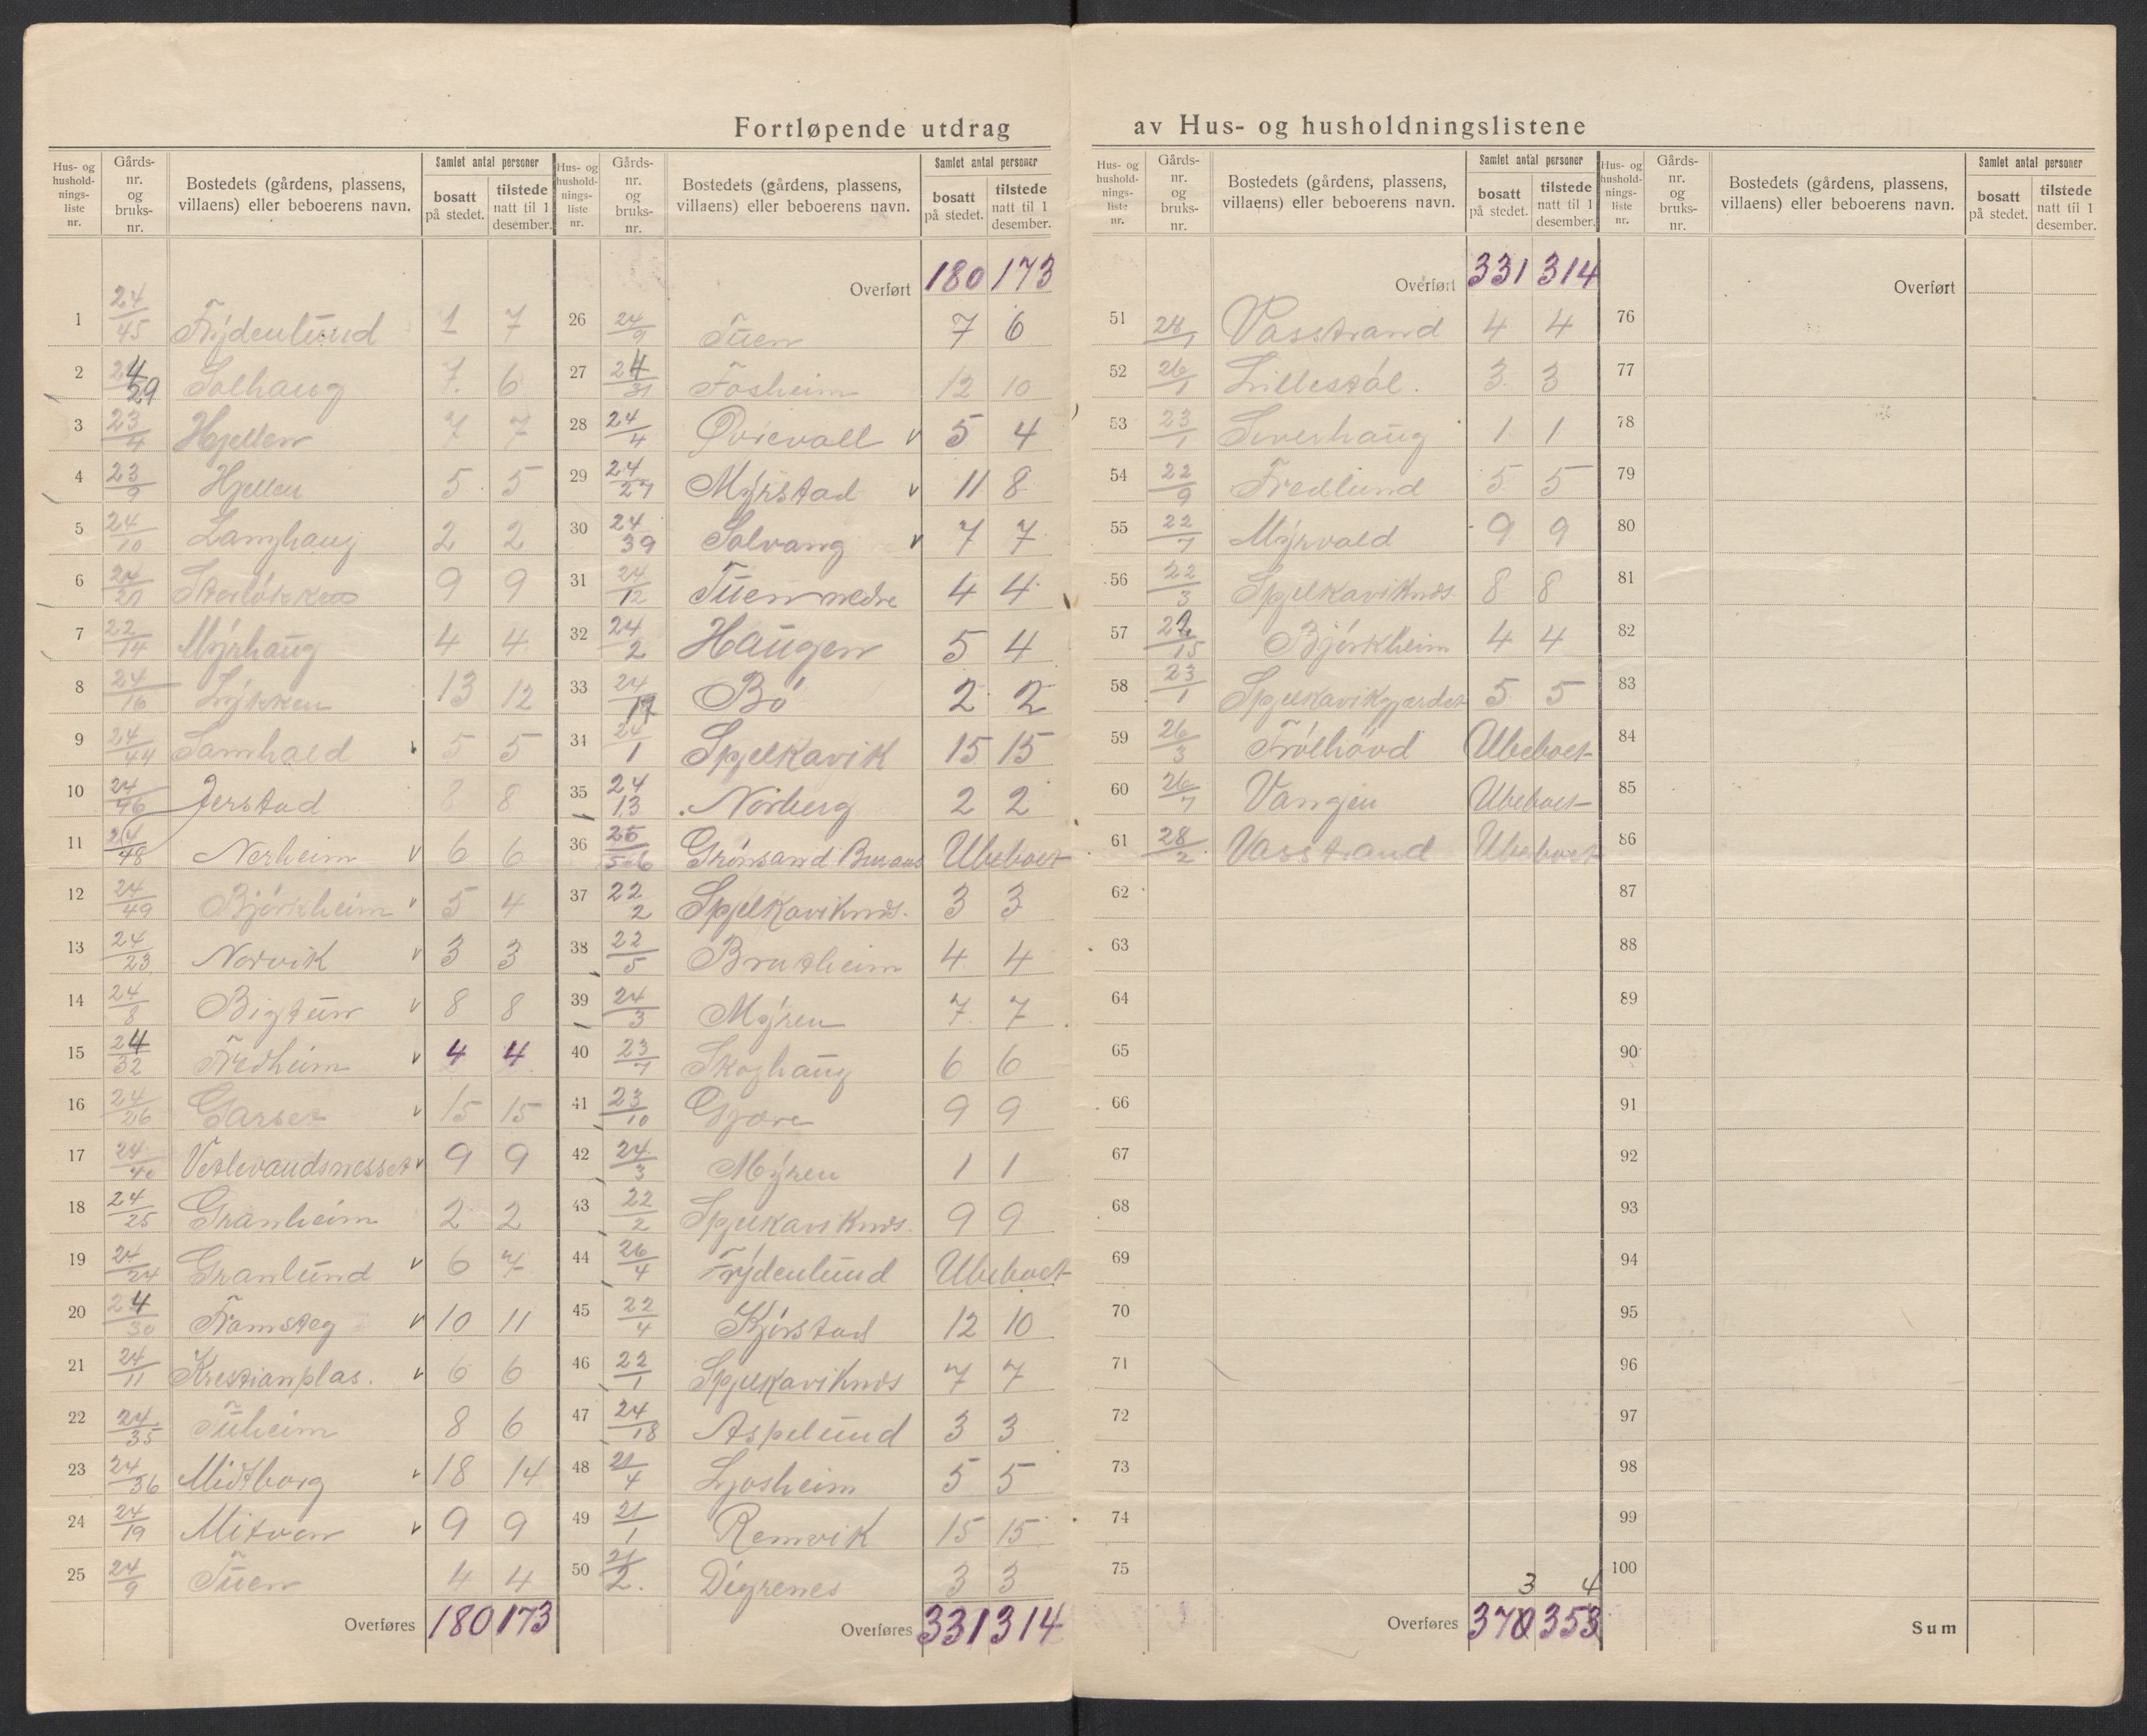 Fortløpende utdrag av Hus- og husholdningslistene
Hus- og husholdnings-liste nr. | Gårds-nr. og bruks-nr. | Bostedets (gårdens, plassens, villaens) eller beboerens navn. | Samlet antal personer bosatt på stedet. | tilstede natt til 1 desember.
1 24/45 Frydenlund 1 7
2 24/29 Solhaug 7 6
3 23/4 Hjellen 7 7
4 23/9 Hjellen 5 5
5 24/10 Langhaug 2 2
6 9 9
7 22/14 Myrhaug 4 4
8 24/16 Lykken 13 12
9 24/44 Samhald 5 5
10 24/46 Jerstad 8 8
11 24/48 Nerheim v 6 6
12 24/49 Bjørkheim v 5 4
13 24/23 Norvik v 3 3
14 24/8 Bigtun v 8 8
15 24/32 Fredheim v 4 4
16 24/26 Garset v 15 15
17 24/40 Vetlevandsnesset v 9 9
18 24/25 Granheim 2 2
19 24/24 Granlund v 6 7
20 24/30 Framsteg v 10 11
21 24/11 Krestianplas. v 6 6
22 24/35 Tuheim 8 6
23 24/36 Midtborg v 18 14
24 24/19 Mitvon v 9 9
25 24/9 Tuen 4 4
Overføres 180 173
Hus- og husholdnings-liste nr. | Gårds-nr. og bruks-nr. | Bostedets (gårdens, plassens, villaens) eller beboerens navn. | Samlet antal personer bosatt på stedet. | tilstede natt til 1 desember.
Overført 180 173
26 24/9 Tuen 7 6
27 24/31 Fosheim 12 10
28 24/4 Øvrevoll v 5 4
29 24/27 Myrstad v 11 8
30 24/39 Solvang v 7 7
31 24/12 Tuen nedre 4 4
32 24/2 Haugen 5 4
33 24/17 Bø 2 2
34 24/1 Spjelkavik 15 15
35 24/13 Norberg 2 2
36 25/5-6 Grønsand Ubeboet
37 22/2 Spjelkaviknds. 3 3
38 22/5 Brutheim 4 4
39 24/3 Myren 7 7
40 23/7 Skoghaug 6 6
41 23/10 Gjøre 9 9
42 24/3 Myren 1 1
43 22/2 Spjelkaviknds. 9 9
44 26/4 Frydenlund Ubeboet
45 22/4 Kjørstad 12 10
46 22/1 Spjelkaviknds 7 7
47 24/18 Aspelund 3 3
48 21/4 Ljosheim 5 5
49 21/1 Remvik 15 15
50 21/2. Digrenes 3 3
Overføres 331 314
Hus- og husholdnings-liste nr. | Gårds-nr. og bruks-nr. | Bostedets (gårdens, plassens, villaens) eller beboerens navn. | Samlet antal personer bosatt på stedet. | tilstede natt til 1 desember.
Overført 331 314
51 28/1 Vasstrand 4 4
52 26/1 Lillestøl. 3 3
53 23/1 Siverhaug 1 1
54 22/9 Fredlund 5 5
55 22/7 Myrvold 9 9
56 22/3 Spjelkaviknds 8 8
57 22/15 Bjørkheim 4 4
58 23/1 Spjelkavikgjerdet 5 5
59 26/3 Trølhøvd Ubeboet
60 26/7 Vangen Ubeboet
61 28/2 Vasstrand Ubeboet
62
63
64
65
66
67
68
69
70
71
72
73
74
75
3 4
Overføres 370 353
Hus- og husholdnings-liste nr. | Gårds-nr. og bruks-nr. | Bostedets (gårdens, plassens, villaens) eller beboerens navn. | Samlet antal personer bosatt på stedet. | tilstede natt til 1 desember.
Overført
76
77
78
79
80
81
82
83
84
85
86
87
88
89
90
91
92
93
94
95
96
97
98
99
100
Sum